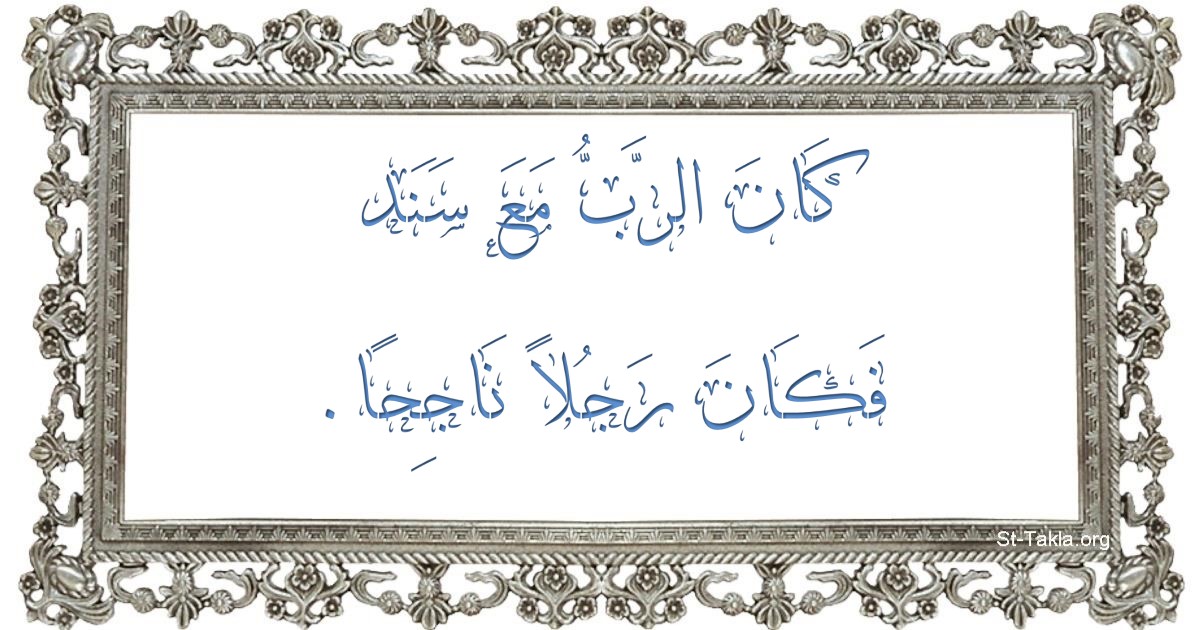 كَانَ الرَّبُّ مَعَ سَنَد
فَكَانَ رَجُلاً نَاجِحًا .
St-Takla.org